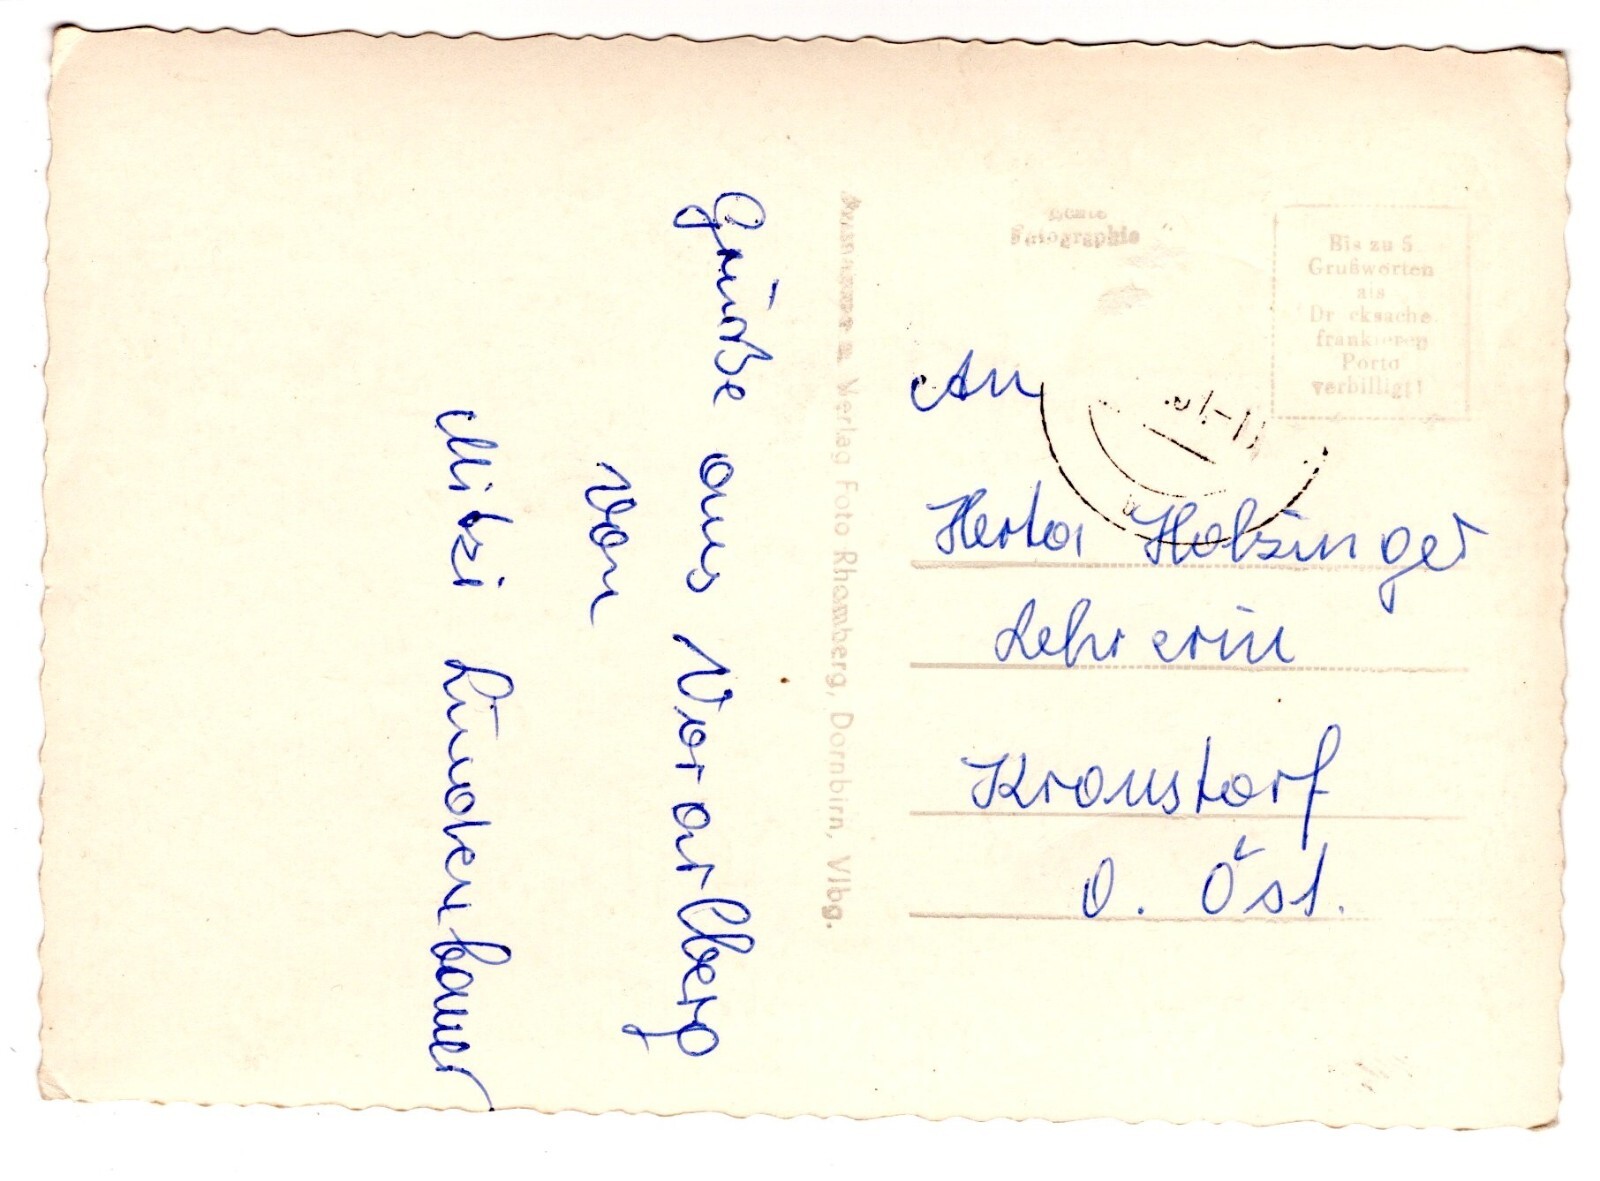 Grüße aus Vorarlberg
von
Mitzi Lindenbauer
Aufnahme u. Verlag Foto Rhomberg, Dornbirn, Vlbg.
Echte
Fotographie
Bis zu 5
Grußworten
als
Drucksache
frankieren
Porto
verbilligt!
An
Herta Holzinger
Lehrerin
Kronstorf
O. Öst.